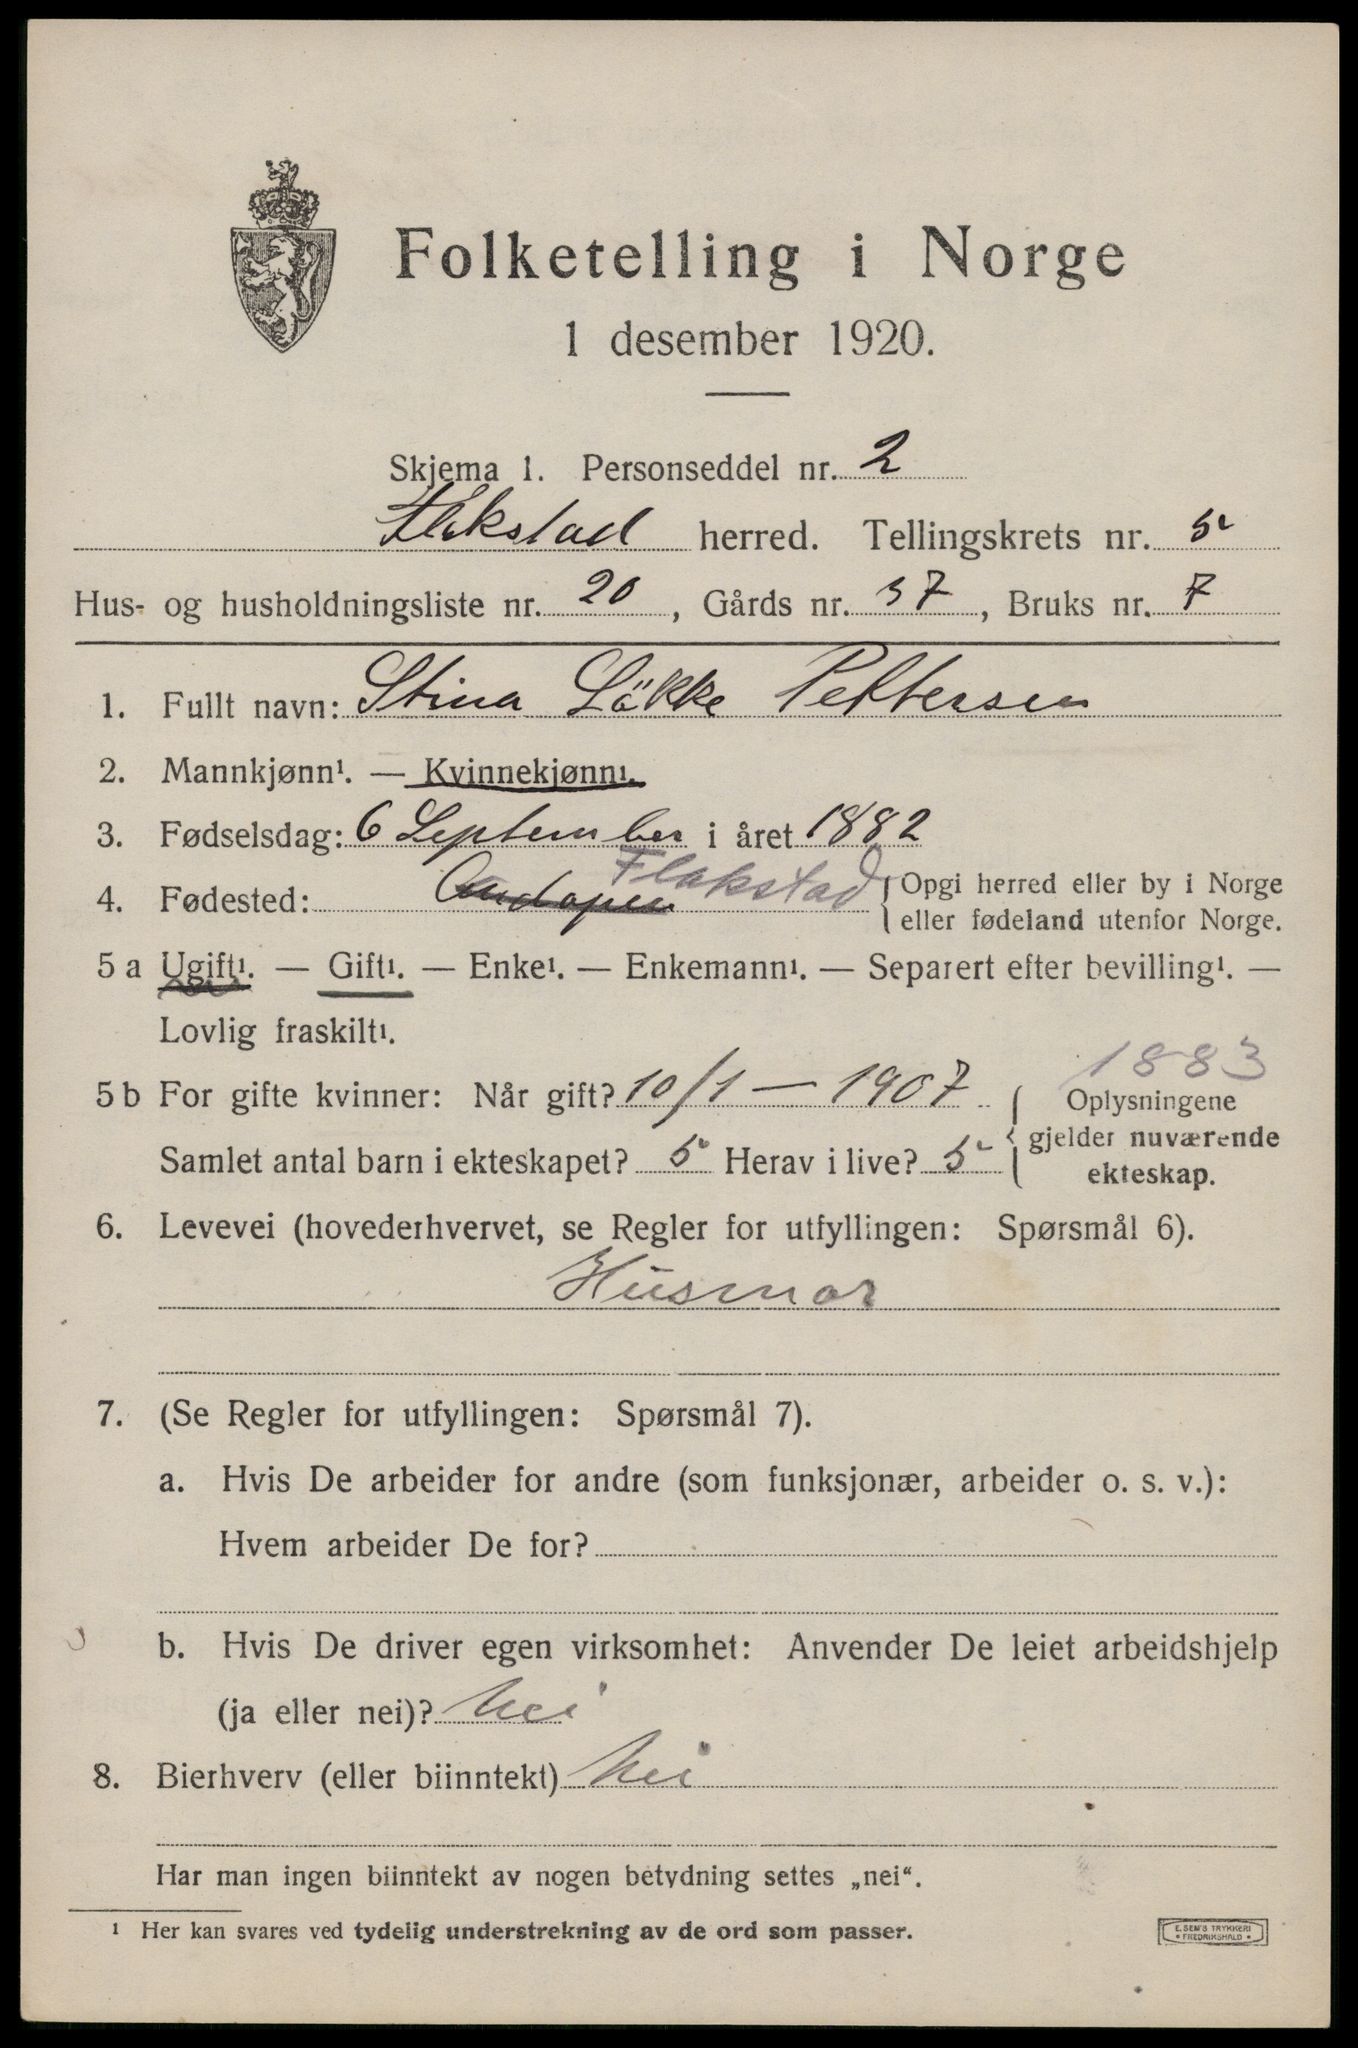 Folketelling i Norge
1 desember 1920.
Skjema 1. Personseddel nr. 2
Flakstad herred. Tellingskrets nr. 5
Hus- og husholdningsliste nr. 20, Gårds nr. 37, Bruks nr. 7
1. Fullt navn: Stina Läkke Pettersen
2. Mannkjønn¹. — Kvinnekjønn¹.
3. Fødselsdag: 6 September i året 1882
Flakstad
4. Fødested: Andopen { Opgi herred eller by i Norge
eller fødeland utenfor Norge.
5 a Ugift¹. — Gift¹. — Enke¹. — Enkemann¹. — Separert efter bevilling¹. —
Lovlig fraskilt¹.
1883
5 b For gifte kvinner: Når gift? 10/1 — 1907 { Oplysningene
gjelder nuværende
Samlet antal barn i ekteskapet? 5 Herav i live? 5
ekteskap.
6. Levevei (hovederhvervet, se Regler for utfyllingen: Spørsmål 6).
Husmor
7. (Se Regler for utfyllingen: Spørsmål 7).
a. Hvis De arbeider for andre (som funksjonær, arbeider o. s. v.):
Hvem arbeider De for?
b. Hvis De driver egen virksomhet: Anvender De leiet arbeidshjelp
(ja eller nei)? Nei
8. Bierhverv (eller biinntekt) Nei
Har man ingen biinntekt av nogen betydning settes „nei“.
¹ Her kan svares ved tydelig understrekning av de ord som passer.
E. SEM'S TRYKKERI
• FREDRIKSHALD •